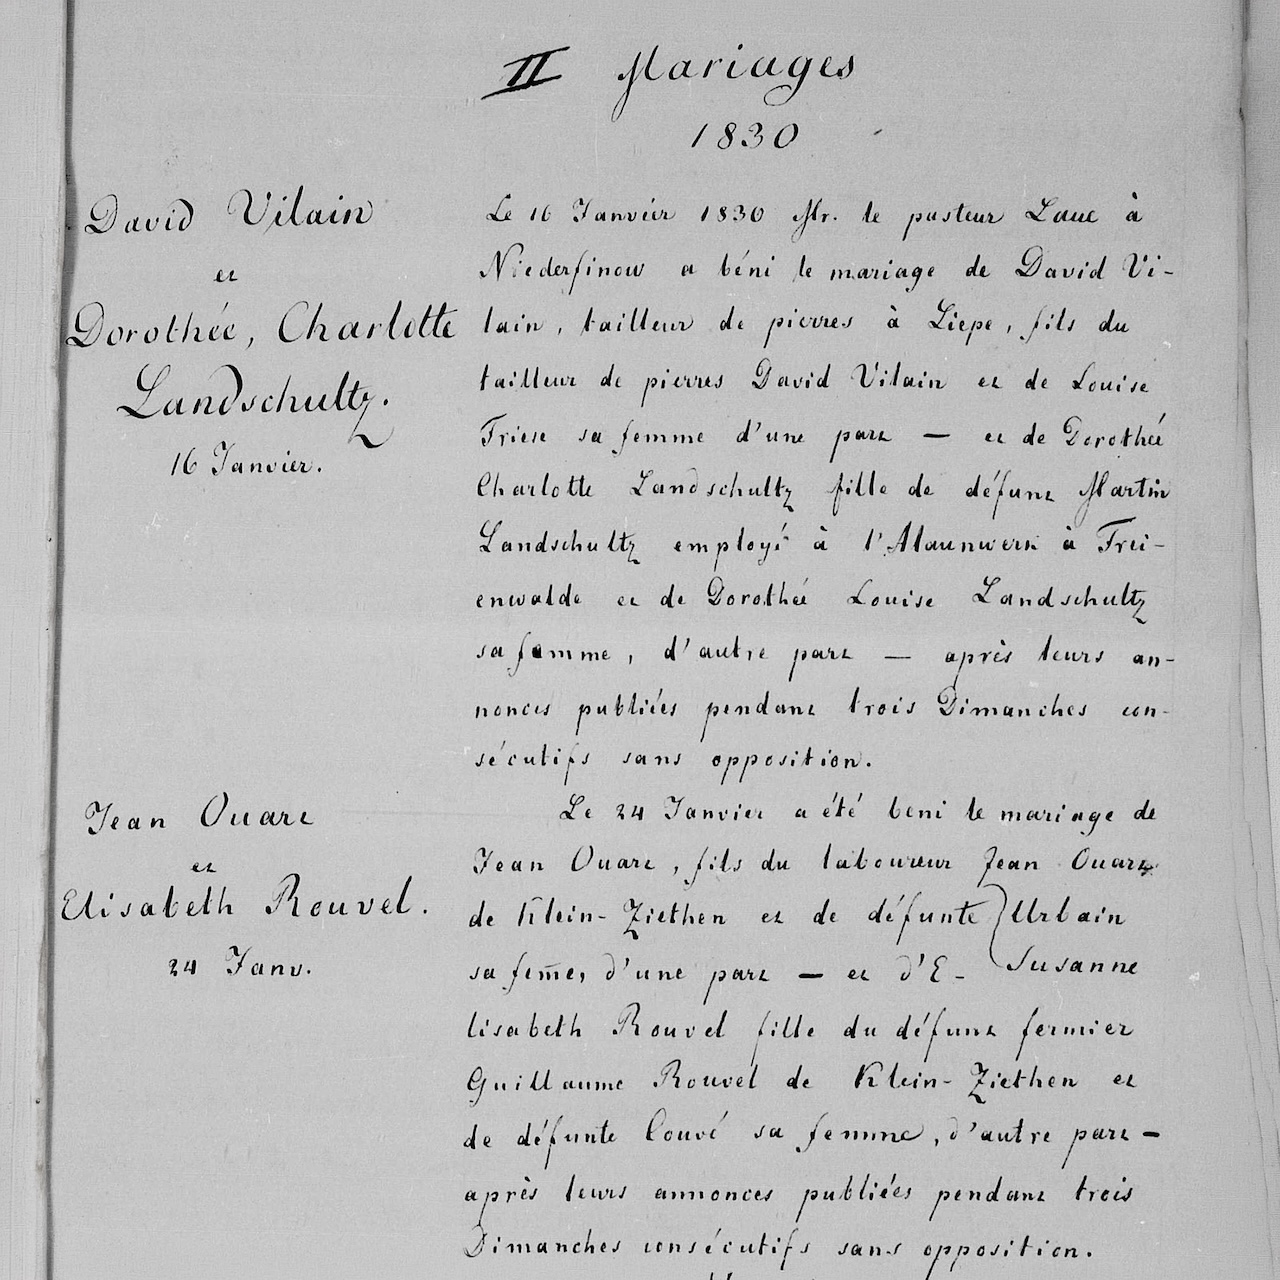 II Mariages
1830
David Vilain
et
Dorothée, Charlotte
Landschultz.
16 Janvier.
Le 16 Janvier 1830 Mr. le pasteur Laue à
Niederfinow a béni le mariage de David Vi-
lain, tailleur de pierres à Liepe, fils du
tailleur de pierres David Vilain et de Louise
Friese sa femme d'une part — et de Dorothée
Charlotte Landschultz fille de défunt Martin
Landschultz employé à l'Alaunwerk à Frei-
enwalde et de Dorothée Louise Landschultz
sa femme, d'autre part — après leurs an-
nonces publiées pendant trois Dimanches con-
sécutifs sans opposition.
Jean Ouart
et
Elisabeth Rouvel.
24 Janv.
Le 24 Janvier a été beni le mariage de
Jean Ouart, fils du laboureur Jean Ouart
de Klein-Ziethen et de défunte Urbain
sa fem̅e, d'une part — et d'E- Susanne
lisabeth Rouvel fille du défunt fermier
Guillaume Rouvel de Klein-Ziethen et
de défunte Couvé sa femme, d'autre part —
après leurs annonces publiées pendant trois
Dimanches consécutifs sans opposition.